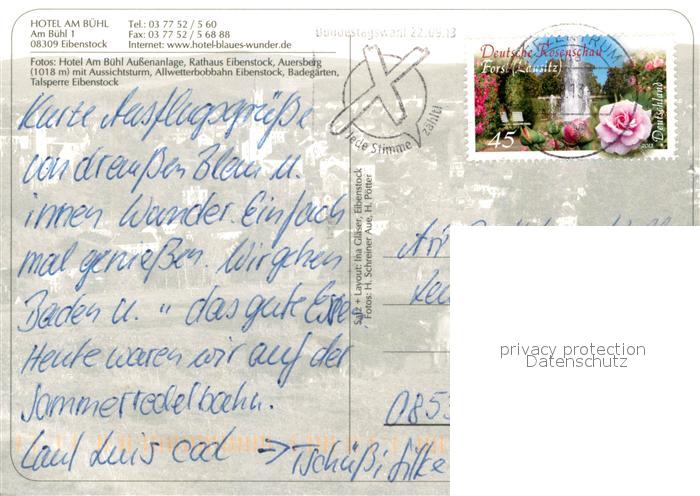 HOTEL AM BÜHL
Am Bühl 1
08309 Eibenstock
Tel.: 03 77 52 / 5 60
Fax: 03 77 52 / 5 68 88
Internet: www.hotel-blaues-wunder.de
Fotos: Hotel Am Bühl Außenanlage, Rathaus Eibenstock, Auersberg
(1018 m) mit Aussichtsturm, Allwetterbobbahn Eibenstock, Badegärten,
Talsperre Eibenstock
Bundestagswahl 22.09.13
Jede Stimme zählt!
Deutsche Rosenschau
Forst (Lausitz)
Deutschland
45
2013
Kurte Ausflugsgrüße
von draußen Blau u.
innen Wunder. Einfach
mal genießen. Wir gehen
Baden u. " das gute Essen
Heute waren wir auf der
Sommerrodelbahn.
Laut Luis cool → Tschüßi, Silke
Satz + Layout: Ina Gläser, Eibenstock
Fotos: H. Schreiner Aue, H. Pötter
085
privacy protection
Datenschutz